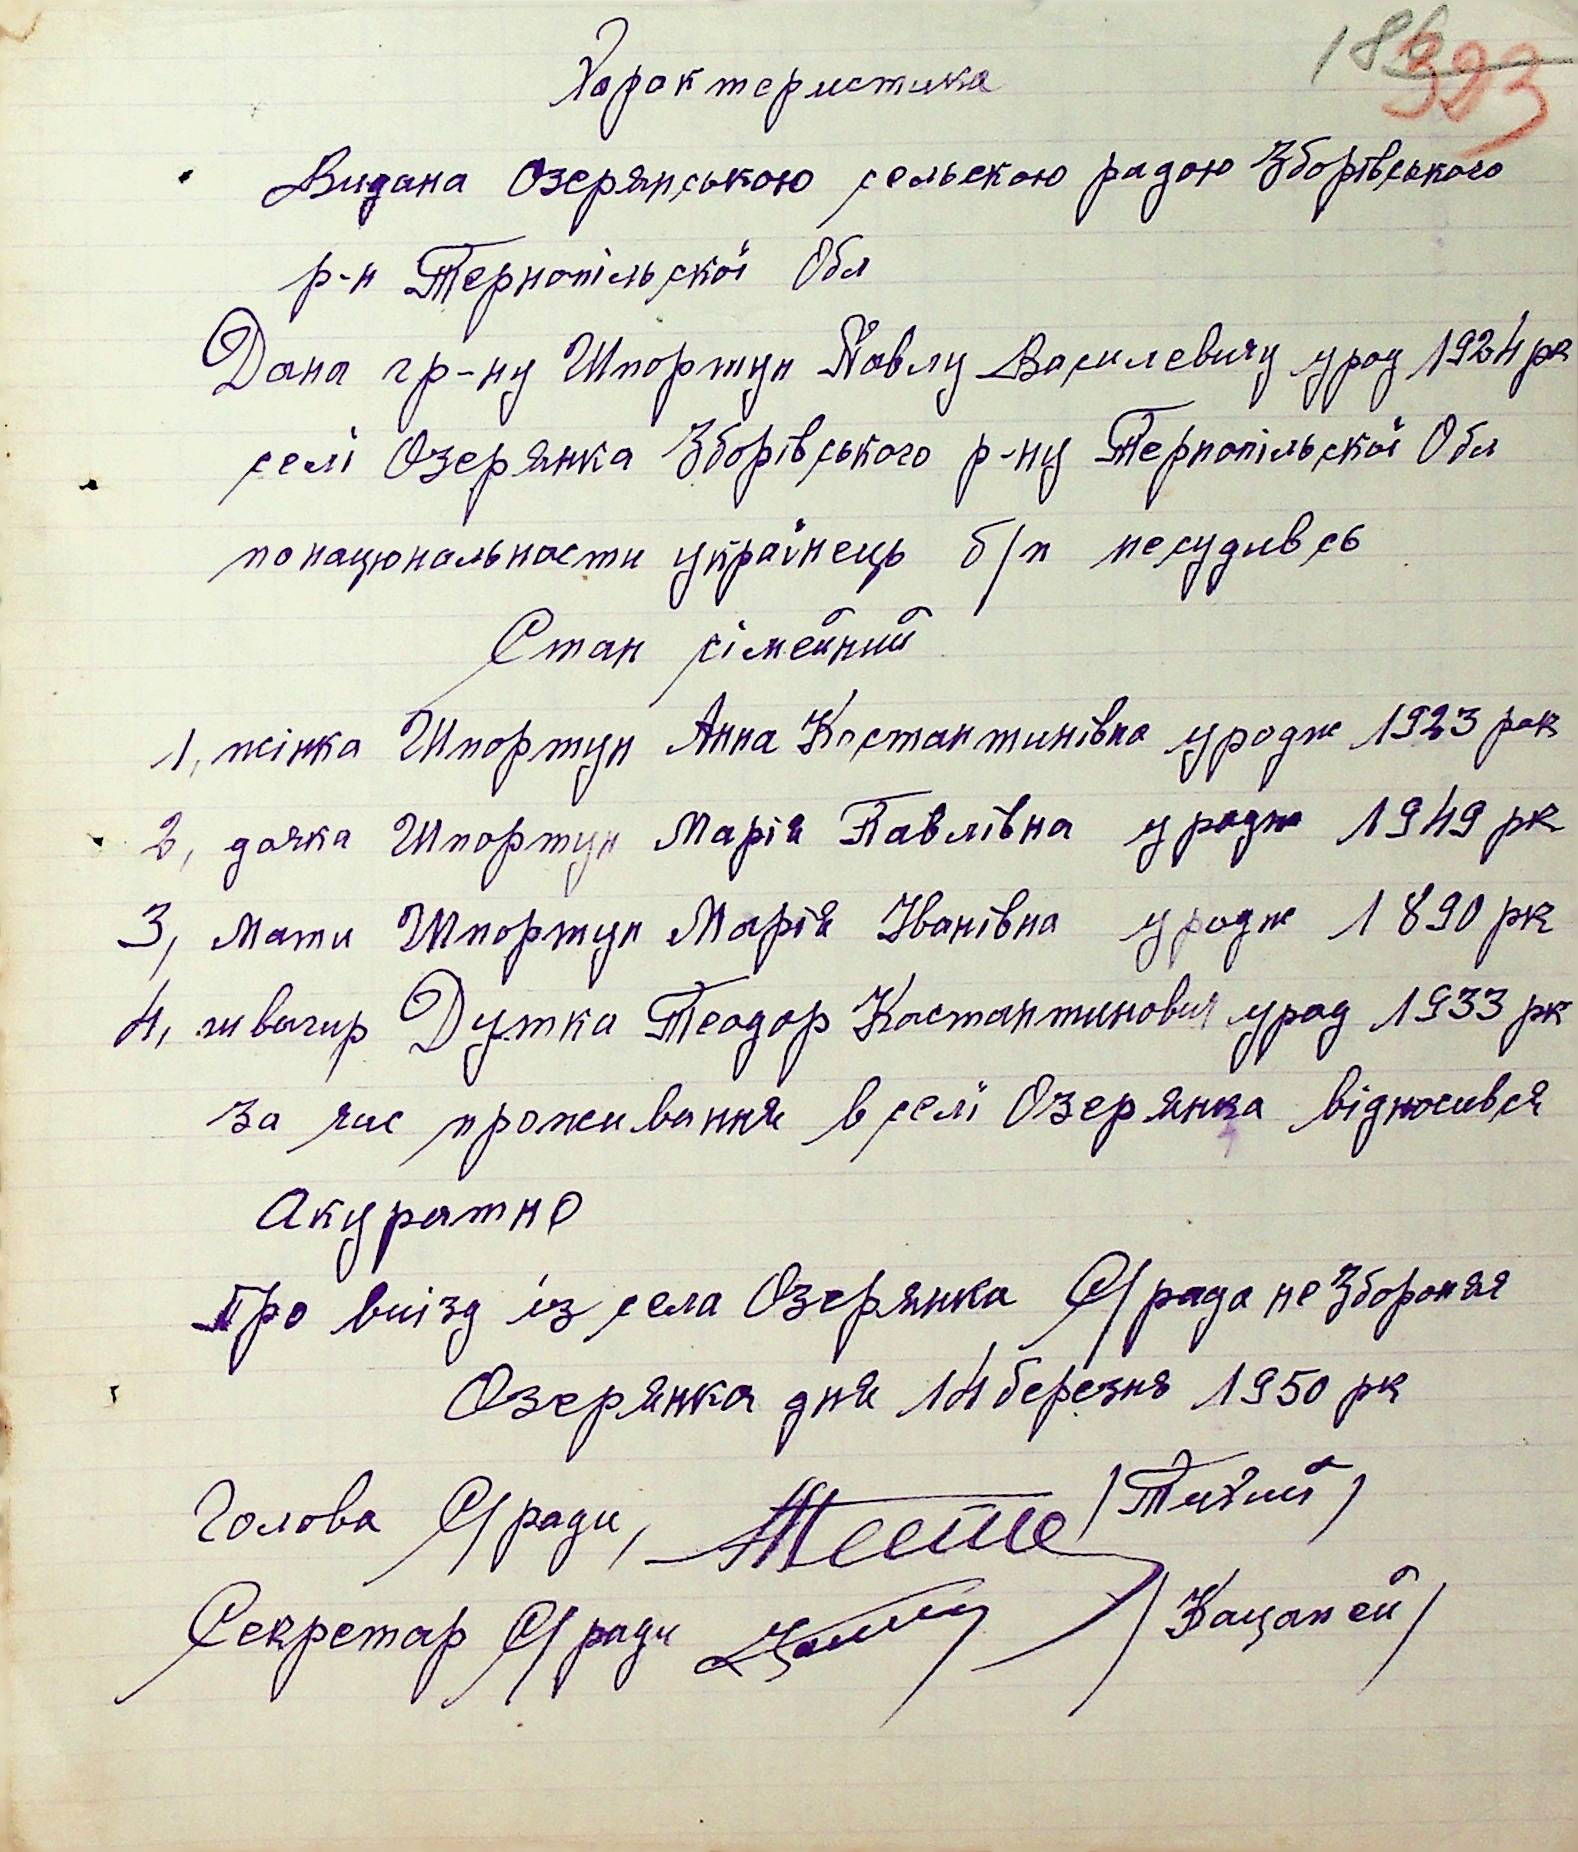 186
393
Характеристика
Видана Озерянською сельскою радою Зборівського
р-н Тернопільскої Обл
Дана гр-ну Шпортун Павлу Василевичу урод 1924 рк
селі Озерянка Зборівського р-ну Тернопільскої Обл
понаціональности українець б/п несудивсь
Стан сімейний
1, жінка Шпортун Анна Костантинівна уродж 1923 рок
2, дочка Шпортун Марія Павлівна уродж 1949 рк
3, мати Шпортун Марія Іванівна уродж 1890 рк
4, швагир Дутка Теодор Костантинович урод 1933 рк
за час проживання в селі Озерянка відносився
Акуратно
Про виізд із села Озерянка С/рада не збороняя
Озерянка дня 14 березня 1950 рк
Голова С/ради, /Тихий/
Секретар С/ради /Кацапей/